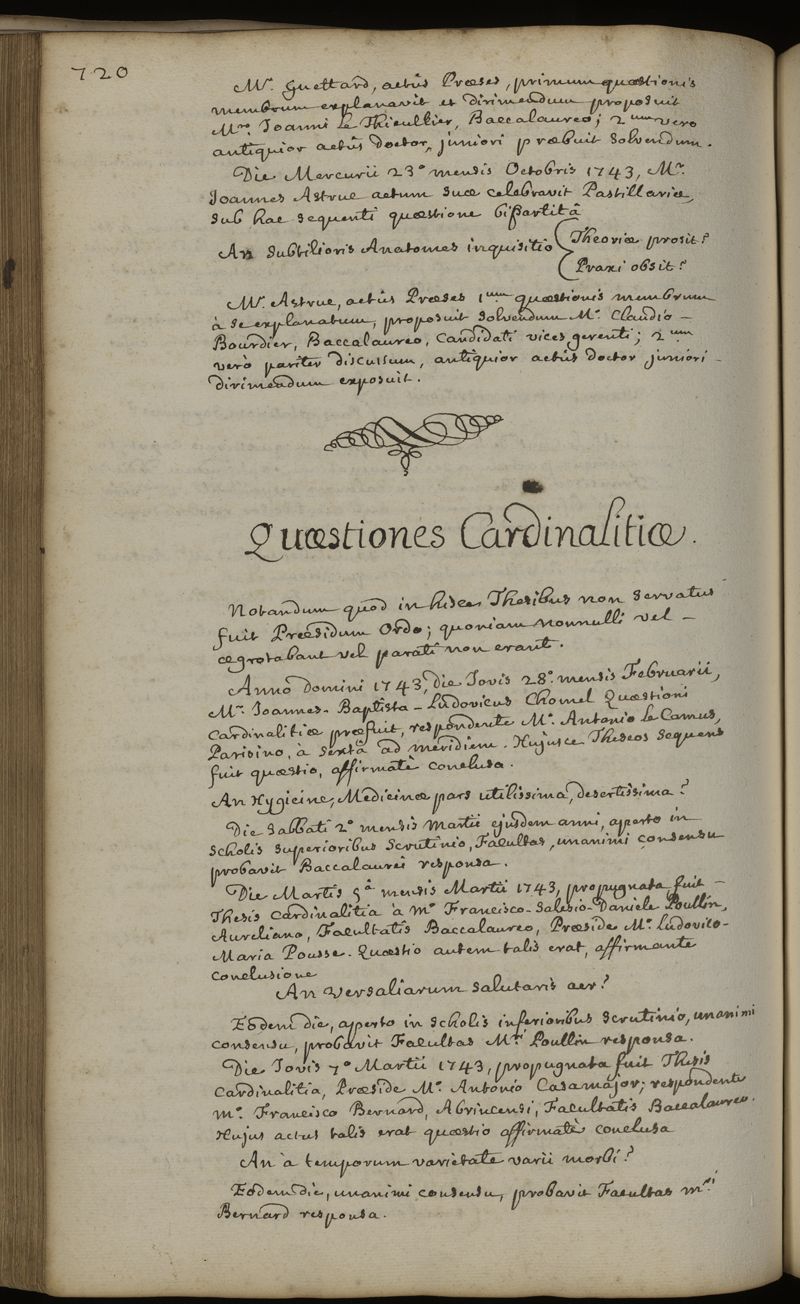 720
Mr. Guettard, actûs Præses, primum quæstionis
membrum explanavit et dirimendum proposuit
Mro. Joanni Le Thieullier, Baccalaureo; 2um vero
antiquior actûs doctor, juniori præbuit solvendum.
Die Mercurii 23o mensis Octobris 1743, Mr.
Joannes Astruc actum suæ celebravit Pastillariæ,
sub hac sequenti quæstione bipartitâ
An subtilioris Anatomes inquisitio { Theoriæ prosit?
Praxi obsit?
Mr. Astruc, actûs Præses 1um quæstionis membrum
à se explanatum, proposuit solvendum Mo. Claudio-
Bourdier, Baccalaureo, Candidati vices gerenti; 2um
verò pariter discussum, antiquior actûs doctor juniori-
dirimendum exposuit.
Quæstiones Cardinalitiæ.
Notandum quod in hisce Thesibus non servatus
fuit Præsidum Ordo; quoniam nonnulli vel-
ægrotabant vel parati non erant.
Anno Domini 1743, die Jovis 28o. mensis Februarii,
Mr. Joannes-Baptista-Ludovicus Chomel Quæstioni
Cardinalitiæ præfuit, respondente Mo. Antonio Le Camus,
Parisino, à sextâ ad meridiem. Hujusce Theseos sequens
fuit quæstio, affirmatè conclusa.
An Hygieine, Medicinæ pars utilissima, desertissima?
Die Sabbati 2o mensis Martii ejusdem anni, aperto in
scholis superioribus Scrutinio, Facultas, unanimi consensu
probavit Baccalaurei responsa.
Die Martis 5â mensis Martii 1743, propugnata fuit-
Thesis Cardinalitia à Mo Francisco-Salesio-Daniele Poullin,
Aureliano, Facultatis Baccalaureo, Præside Mo. Ludovico-
Maria Pousse. Quæstio autem talis erat, affirmante
conclusione
An Versaliarum salutaris aer?
Eodem die, aperto in scholis inferioribus scrutinio, unanimi
consensu, probavit Facultas Mri Poullin responsa.
Die Jovis 7o Martii 1743, propugnata fuit Thesis
Cardinalitia, Præside Mo. Antonio Casamajor; respondente
Mo. Francisco Bernard, Abrincensi, Facultatis Baccalaureo.
Hujus actus talis erat quæstio affirmatè conclusa
An à temporum varietate varii morbi?
Eodem die, unanimi consensu, probavit Facultas Mri
Bernard responsa.